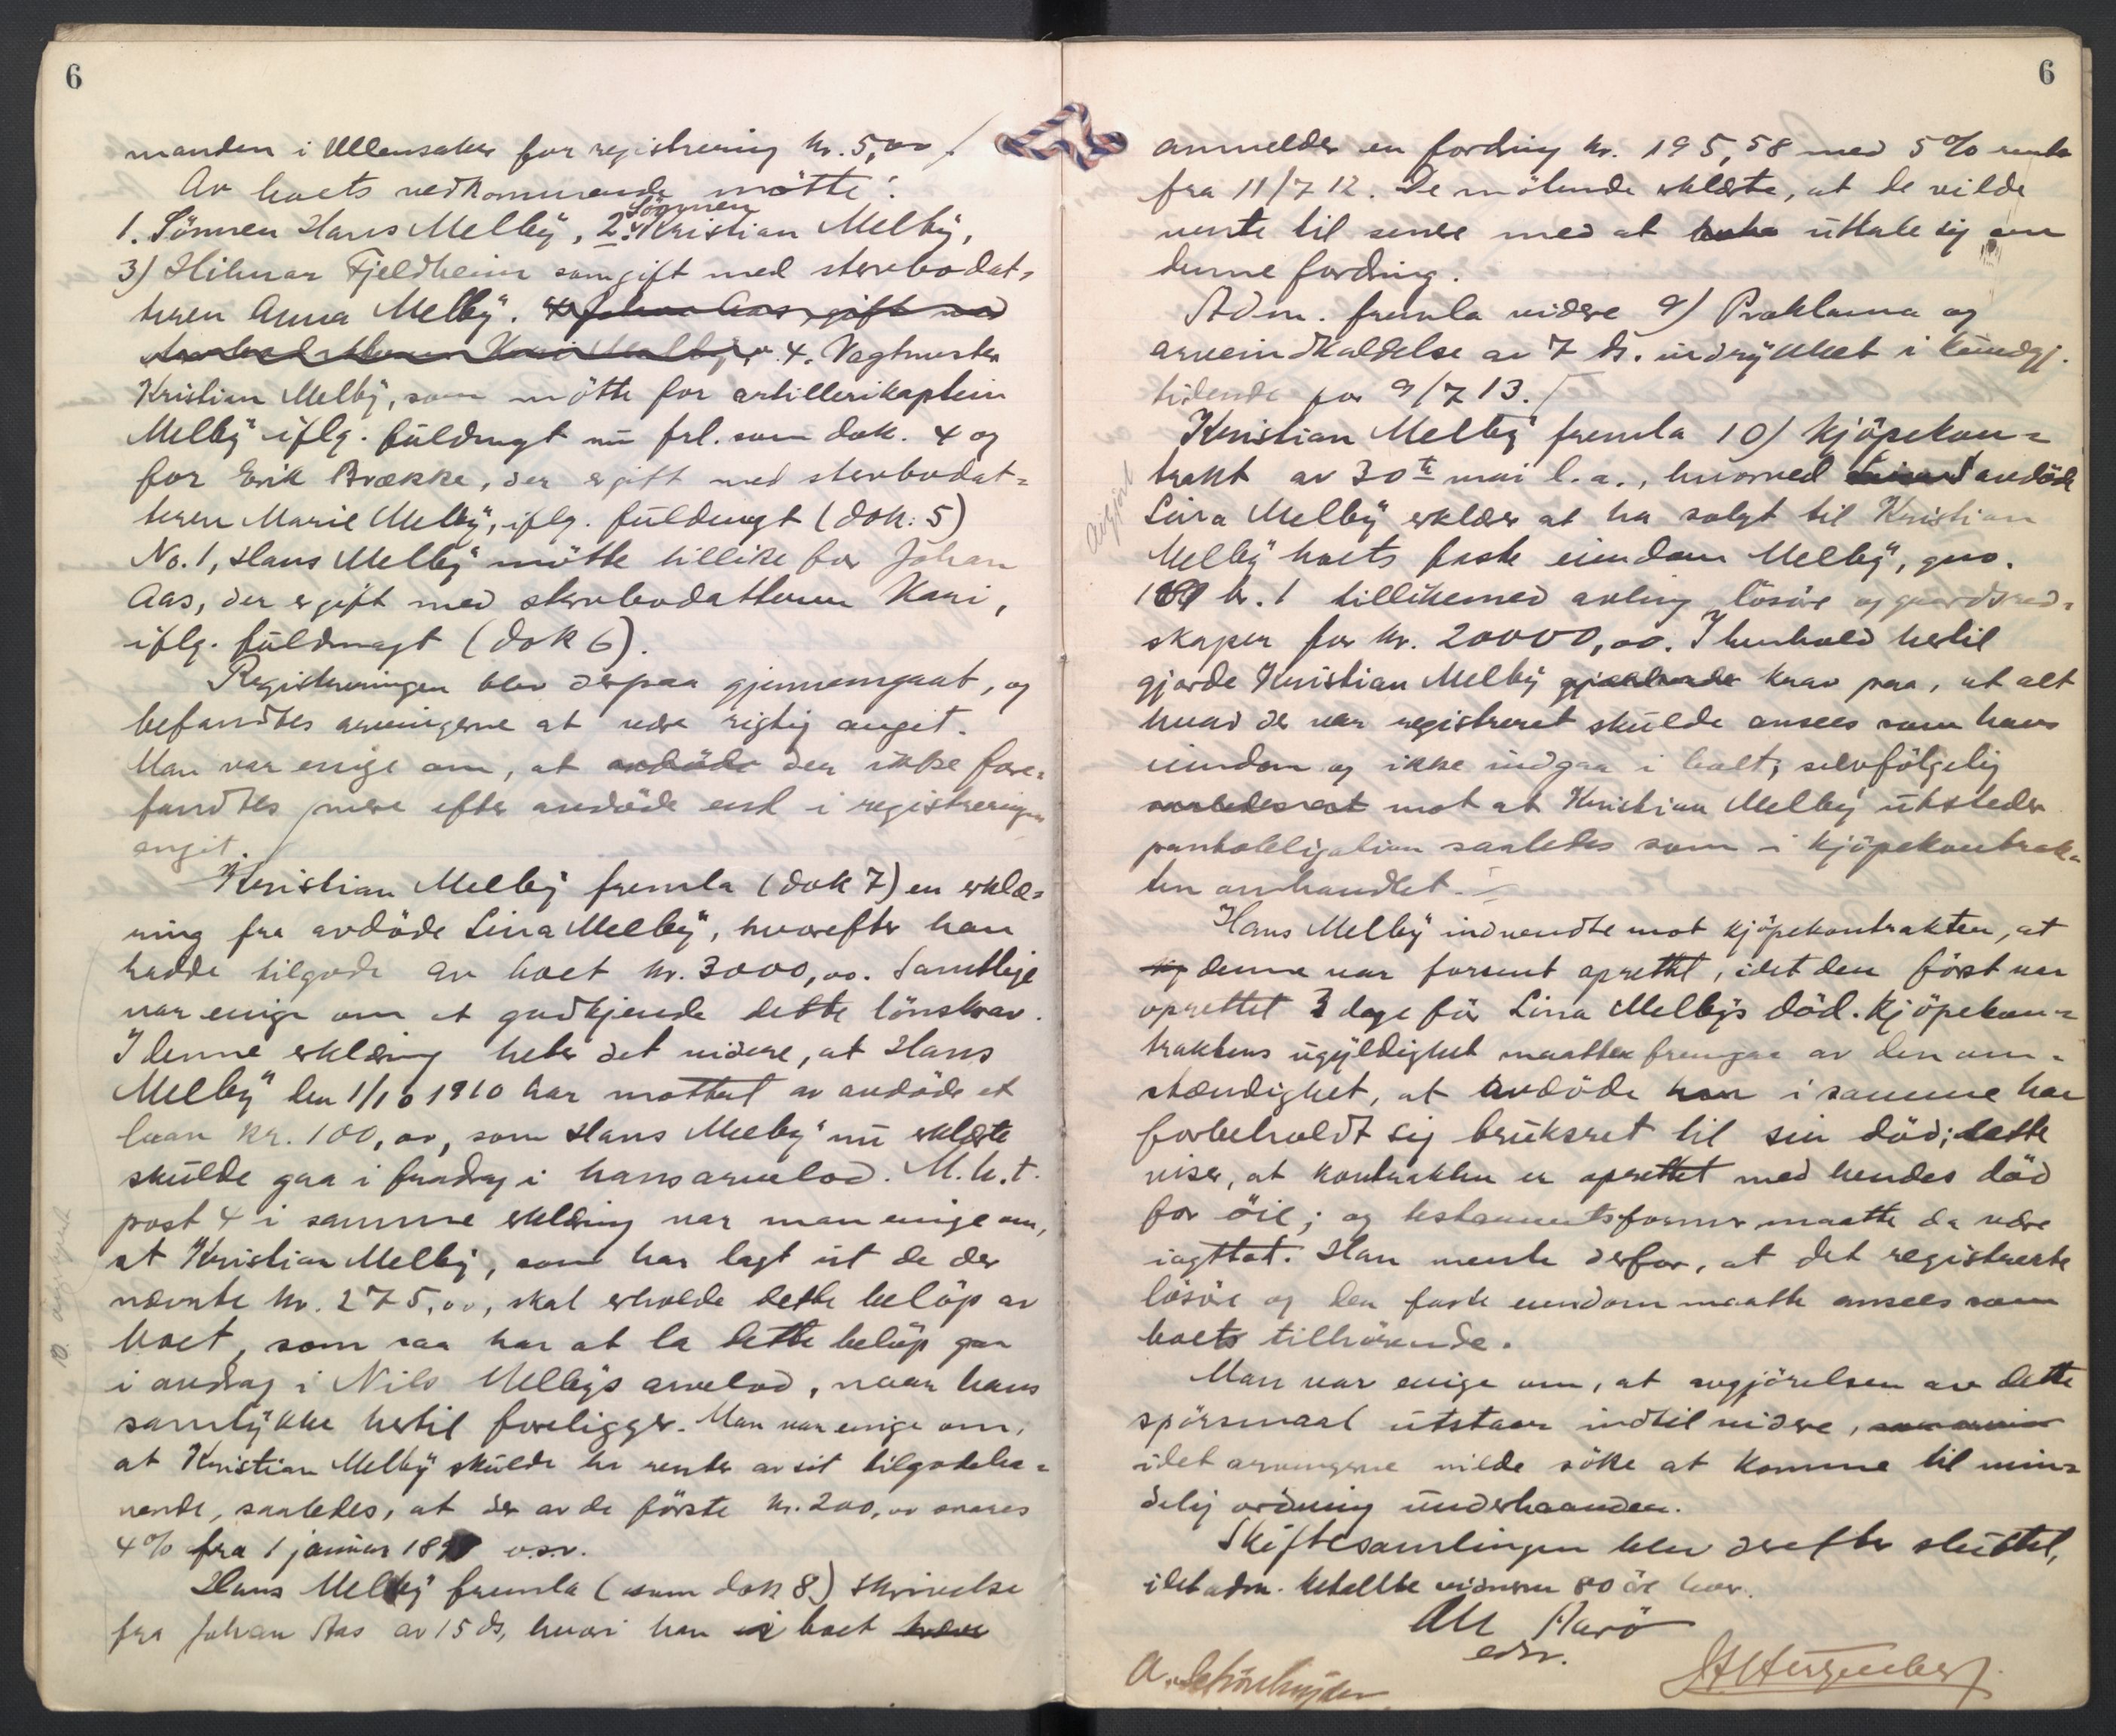 6
manden i Ullensaker for registrering kr. 5,00
Av boets vedkommende mötte:
1. Sönnen Hans Melby, 2. Sönnen Kristian Melby,
3) Hilmar Fjeldheim som gift med stervbodat-
teren Anna Melby. 4) Johan Aas, gift med
stervbodatteren Kari Melby 4. Vagtmester
Kristian Melby, som mötte for artillerikaptein
Melby iflg. fuldmagt nu frl. som dok. 4 og
for Erik Brække, der er gift med stervbodat-
teren Marie Melby, iflg. fuldmagt (dok. 5)
No. 1, Hans Melby mötte tillike for Johan
Aas, der er gift med stervbodatteren Kari,
iflg. fuldmagt (dok 6).
Registreringen blev derpaa gjennemgaat, og
befandtes arvingerne at være rigtig angit.
Man var enige om, at avdöde der ikke fore-
fandtes mere efter avdöde end i registreringen
angit.
Kristian Melby fremla (dok 7) en erklæ-
ring fra avdöde Lina Melby, hvorefter han
hadde tilgode av boet kr. 3000,00. Samtlige
var enige om at godkjende dette lönskrav.
I denne erklæring heter det videre, at Hans
Melby den 1/10 1910 har mottat av avdöde et
laan kr. 100,00, som Hans Melby nu erklærte
skulde gaa i fradrag i hans arvelod. M.h.t.
post 4 i samme erklæring var man enige om,
at Kristian Melby, som har lagt ut de der
nævnte kr. 275,00, skal erholde dette belöp av
boet, som saa har at la dette belöp gaa
i avdrag i Nils Melbys arvelod, naar hans
samtykke hertil foreligger. Man var enige om,
at Kristian Melby skulde ha renter av sit tilgodeha-
vende, saaledes, at der av de förste kr. 200,00 svares
4% fra 1 januar 189 o.s.v.
Hans Melby fremla (som dok 8) skrivelse
fra Johan Aas av 15 ds, hvori han i boet
6
anmelder en fordring kr. 195,58 med 5% rente
fra 11/7 12. De mötende erklærte, at de vilde
vente til senere med at uttale sig om
denne fordring.
Adm. fremla videre 9) Proklama og
arveindkaldelse av 7 ds. indrykket i kundgj.
tidende for 9/7 13.
Kristian Melby fremla 10) Kjöpekon-
trakt av 30te mai l.a., hvorved avdöde
Lina Melby erklærer at ha solgt til Kristian
Melby boets faste eiendom Melby, gno.
br. 1 tillikemed avling lösöre og gaardsred-
skaper for kr. 20000,00. I henhold hertil
gjorde Kristian Melby gjældende krav paa, at alt
hvad der var registreret skulde ansees som hans
eiendom og ikke indgaa i boet, selvfölgelig
mot at Kristian Melby utsteder
pantobligation saaledes som i kjöpekontrak-
ten omhandlet.
Hans Melby indvendte mot kjöpekontrakten, at
denne var forsent oprettet, idet den först var
oprettet 3 dage för Lina Melbys död. Kjöpekon-
traktens ugyldighet maatte fremgaa av den om-
stændighet, at avdöde han i samme har
forbeholdt sig bruksret til sin död; dette
viser, at kontrakten er oprettet med hendes död
for öie; og testamentsformer maatte da være
iagttat. Han mente derfor, at det registrerte
lösöre og den faste eiendom maatte ansees som
boets tilhörende.
Man var enige om, at avgjörelsen av dette
spörsmaal utstaar indtil videre,
idet arvingerne vilde söke at komme til min-
delig ordning underhaanden.
Skiftesamlingen blev derefter sluttet,
idet adm. betalte vidnerne 80 öre hver.
Aarö
edsv.